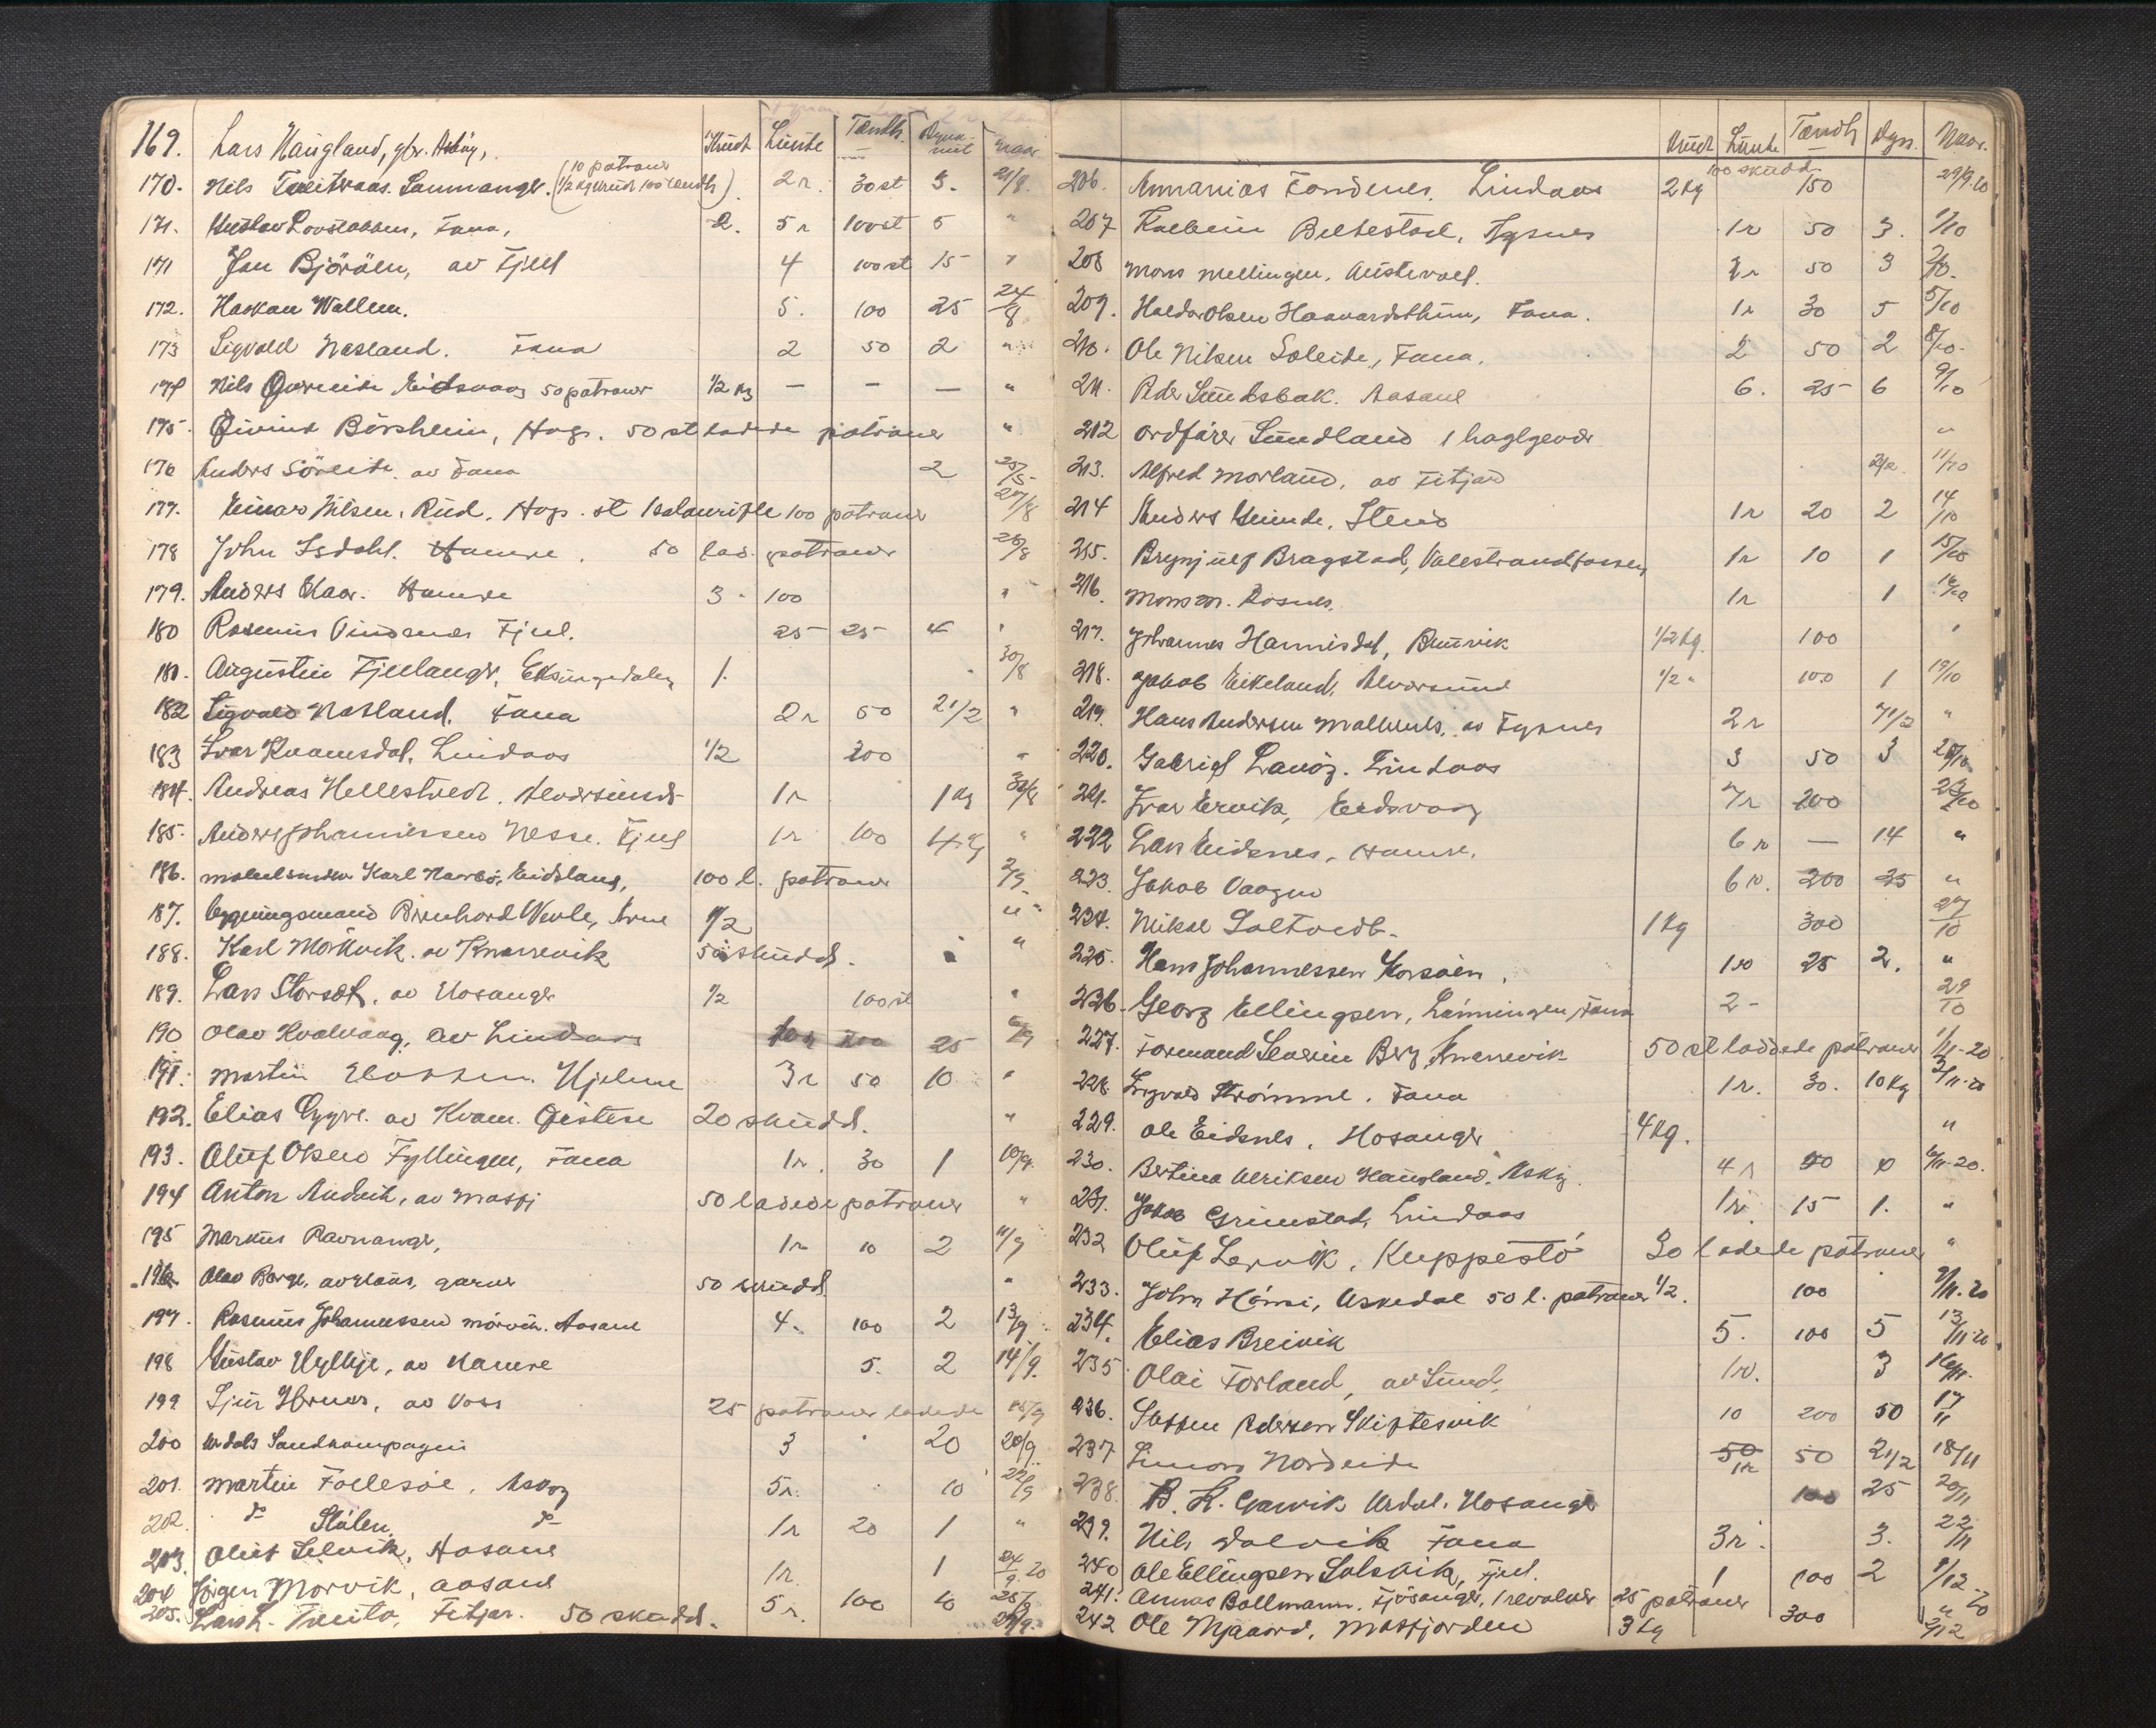 Krudt Lunte Tændh. Dyna-mit Naar
169. Lars Haugland, gbr. Askøy,
170. Nils Tveitraas. Samnanger. (10 patroner ½ kg krudt 100 tændh) 2 r. 30 st 5. 21/8.
171. Gustav Fana, 2. 5 r 100 st 5 "
171 Jan Björöen, av Fjell 4 100 st 15 "
172. Haakan Wallem. 5. 100 25 24/8
173 Sigvald Nesland. Fana 2 50 2 "
174 Nils Eidsvaag 50 patroner ½ kg — — — "
175. Øivind Börsheim, Hop. 50 st ladede patroner "
176 Anders Söreide. av Fana 2 25/8
177. Einar Nilsen, Rud, Hop. st salonrifle 100 patroner 27/8
178 John Isdahl. Hamre. 50 lad. patroner 28/8
179. Anders Hamre 3 - 100 "
180 Rasmus Vindenes Fjell. 25 25 4 "
181. Augustin Fjellanger, Eksingedalen 1. 30/8
182 Sigvald Nesland, Fana 2 r 50 2 1/2 "
183 Ivar Kvamsdal, Lindaas ½ 200 "
184. Andreas Hellestvedt. Alversund 1 r 1 kg 30/8
185. Anders Johannessen Nesse. Fjell 1 r 100 4 kg "
186. Karl Eidsland, 100 l. patroner 2/9
187. Bygningsmand Bernhard Werle, Arne ½ "
188. Karl Mörkvik. av Knarrevik 50 skudd. "
189. Lars Storset, av Hosanger ½ 100 st "
190 Olav Kvalvaag, av Lindaas 25
191. Martin Elassen. Hjelme 3 r 50 10 "
192. Elias Gyyre. av Kvam. Øistese 20 skudd. "
193. Oluf Olsen Fyllingen, Fana 1 r. 30 1 10/9.
194 Anton av Masfj 50 ladede patroner "
195 Markus Ravnanger, 1 r 10 2 11/9
196 Olav Berge. 50 skudd "
197. Rasmus Johannessen Mörvik. Aasane 4. 100 2 13/9
198 Gustav Hylkje, av Hamre 5. 2 14/9.
199 Sjur av Voss 25 patroner ladede 15/9
200 Urdals Sandkompagni 3 20 20/9.
201. Martin Follesøe. Askøy 5 r. 10 22/9
202. do Stálen, do 1 r 20 1 "
203. Oluf Selvik, Aasane 1 r. 1 24/9 20
204 Jörgen Morvik, Aasane 5 r. 100 10 25/9
205. Lars L. Fitjar. 50 skudd.
Krudt Lunte Tændh Dyn. Naar.
206. Annanias Fondenes. Lindaas 2 kg 100 skudd 150 29/9.20
207 Tysnes 1 r 50 3. 1/10
208 Mons Mellingen, Austevoll. 2 r 50 3 2/10.
209. Haldor Olsen Haavardsthun, Fana. 1 r 30 5 5/10
210. Ole Nilsen Söleide, Fana. 2 50 2 8/10.
211. Peder Sundsbak. Aasane 6. 25 6 9/10
212 Ordfører Sundland 1 haglgevær "
213. Alfred Morland, av Fitjar 11/10
214 Anders Stend 1 r 20 2 14/10
215. Brynjulf Bragstad, Valestrandfossen 1 r 10 1 15/10
216. Mons M. Rosnes. 1 r 1 16/10
217. Johannes Hannisdal, Bruvik ½ kg. 100 "
218. Jakob Eikeland, Alversund ½ " 100 1 19/10
219. Hans Andersen Malkenes, av Tysnes 2 r 7 1/2 "
220. Gabriel Lauöy. Lindaas 3 50 3 20/10
221. Ivar Ervik, Eidsvaag 7 r 200 23/10
222 Lars Eidsnes, Hamre. 6 r — 14 "
223. Jakob Vaagen 6 r. 200 25 "
224. Nikol Soltvedt. 1 kg 300 27/10
225. Hans Johannessen Korsöen. 1 r 25 2. "
226. Georg Ellingsen, Lönningen, Fana 2 - 29/10
227. Formand Severin Berg Knarrevik 50 st ladede patroner 1/11-20
228. Sigvald Strömme. Fana 1 r. 30. 10 kg 3/11-20
229. Ole Eidsnes, Hosanger 4 kg. "
230. Bertina Ulriksen Haugland, Askøy. 4 r 6/11-20.
231. Jakob Grimstad, Lindaas 1 r. 15 1. "
232 Oluf Lervik, Kleppestö 30 ladede patroner "
233. John Uskedal 50 l. patroner ½. 100 9/11-20
234. Elias Breivik 5. 100 5 13/11-20
235. Olai Forland, av Sund, 1 r. 3 16/11.
236. Steffen Pedersen Skiftesvik 10 200 50 17/11
237 Simon Nordeide 50 1 r 50 2 1/2 18/11
238. B. K. Garvik Urdal. Hosanger 100 25 20/11
239. Nils Dalvik Fana 3 r. 3. 22/11
240 Ole Ellingsen Solsvik, Fjell. 1 100 2 1/12
241. Annas Ballmann. Fjösanger, 1 revolver 25 patroner "
242 Ole Mjaavd, Masfjorden 3 kg 300 2/12